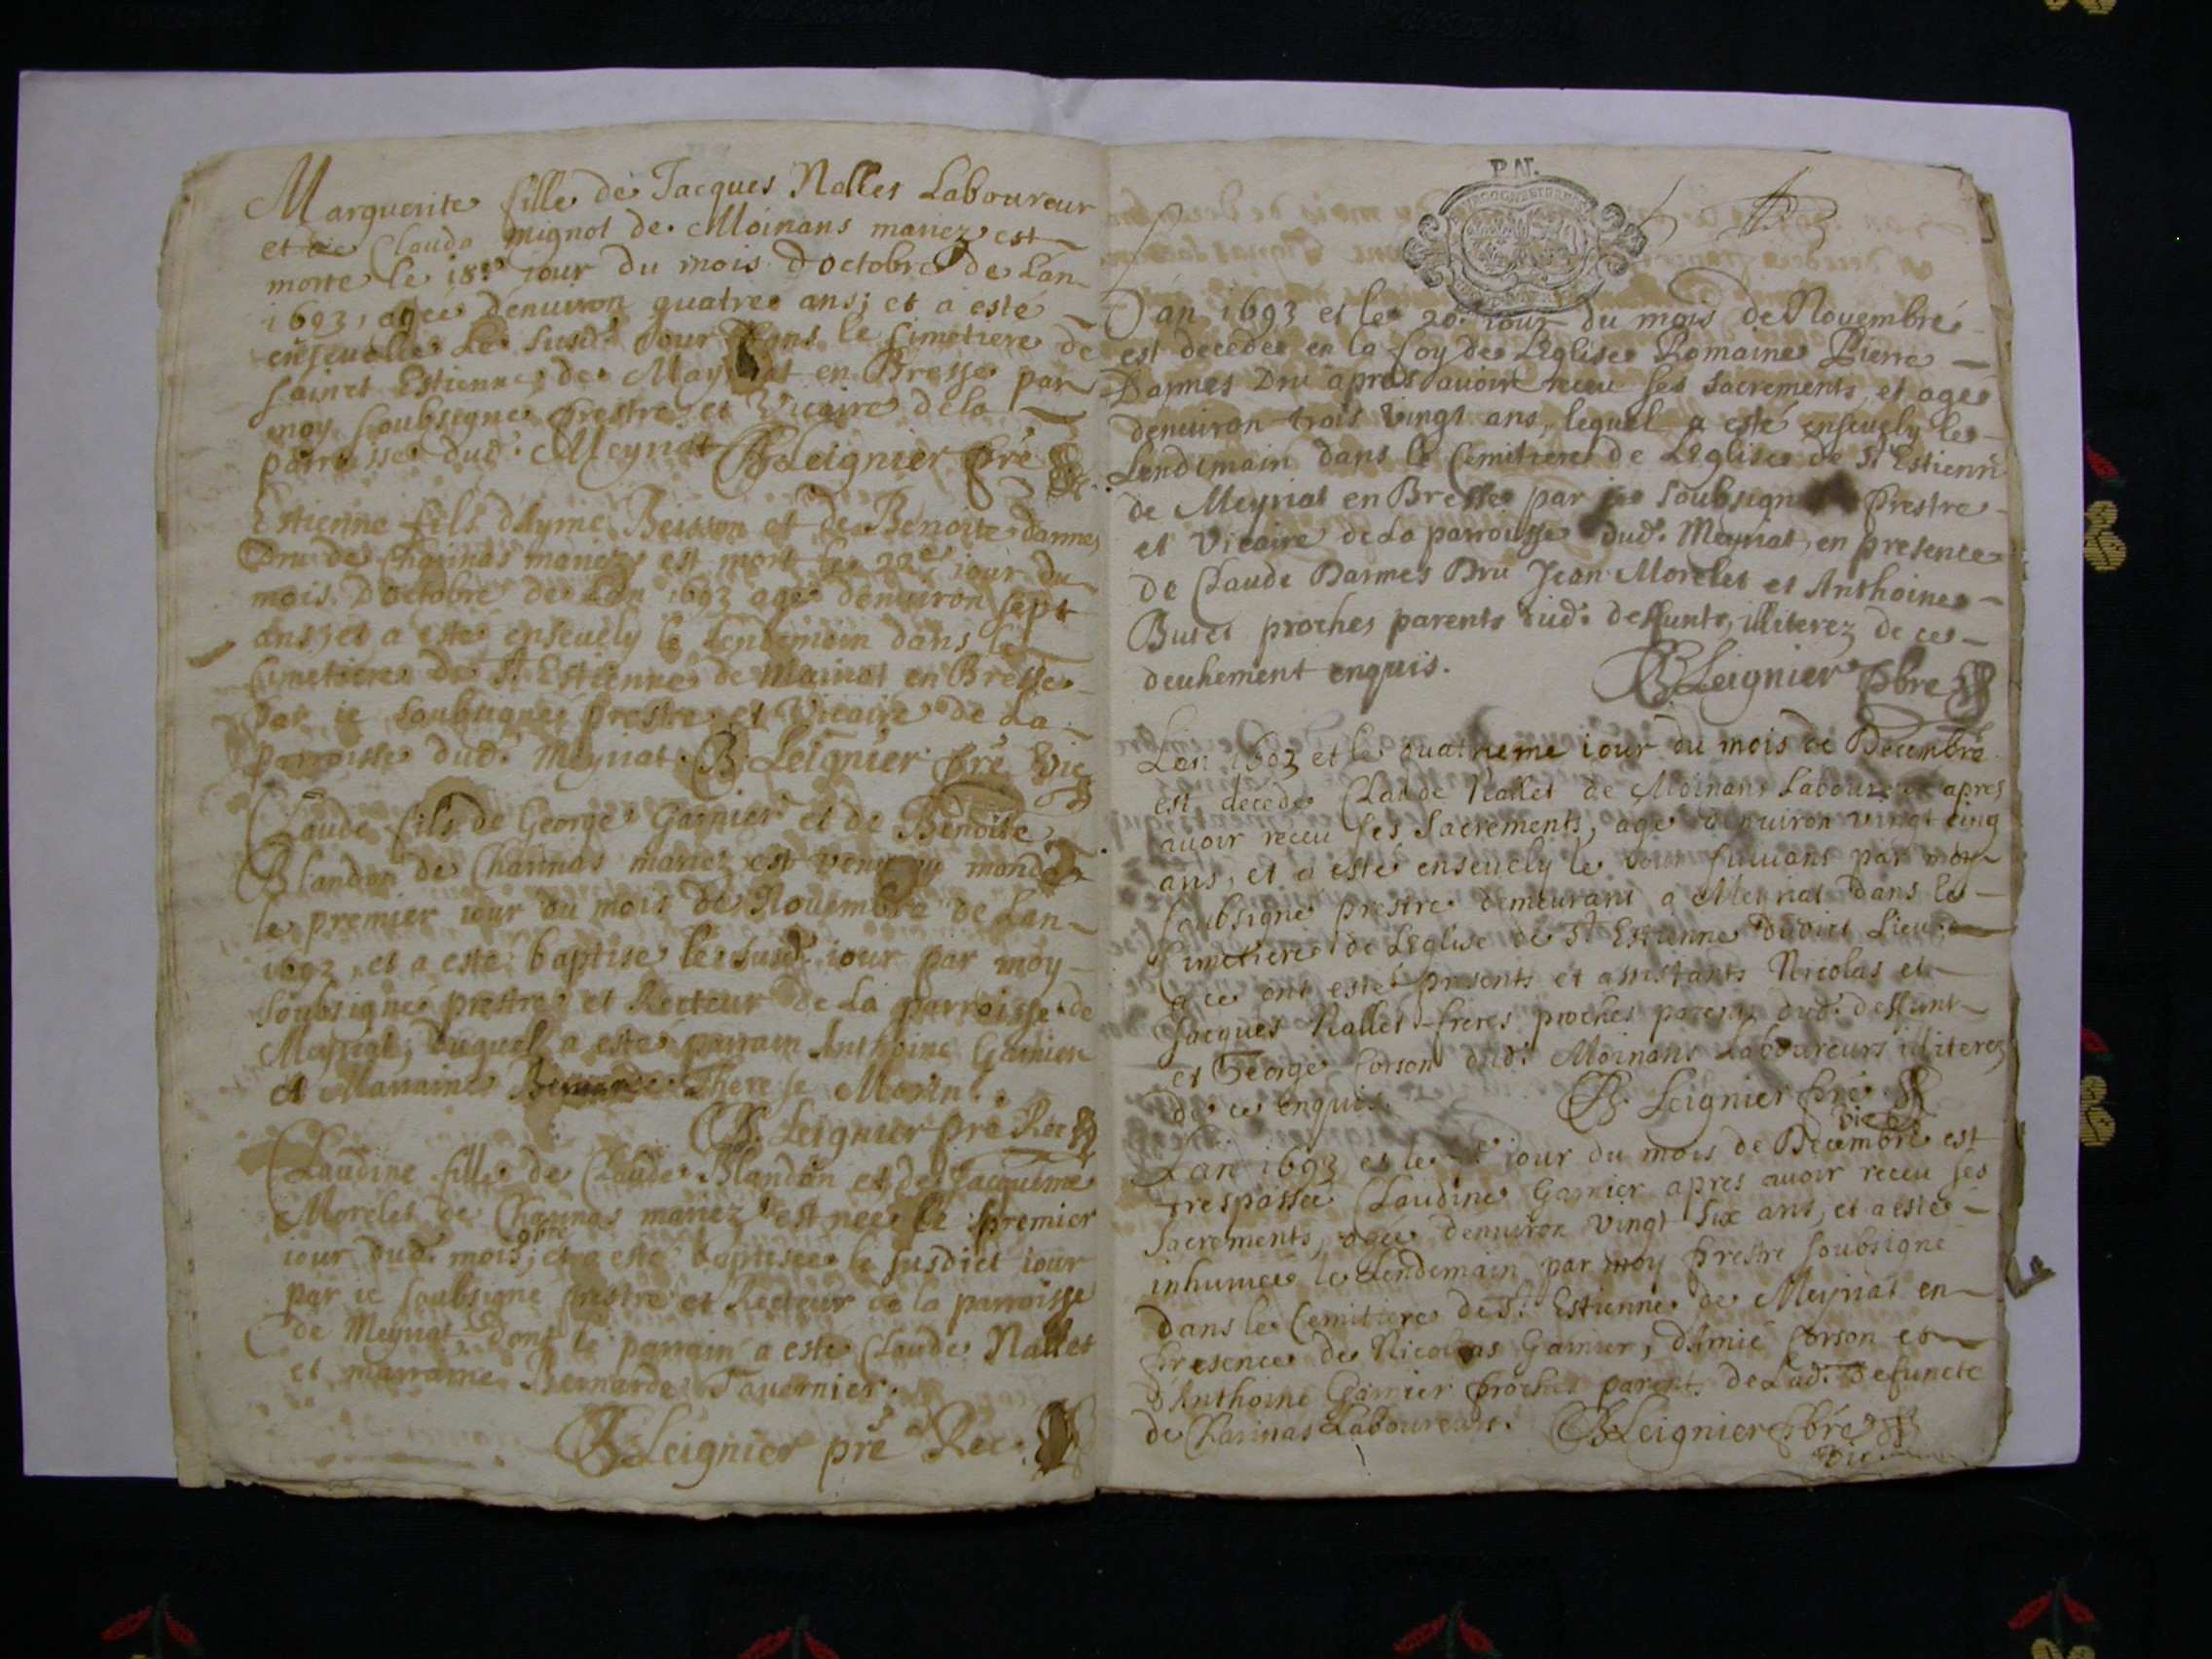 Marguerite fille de Jacques Nalles Laboureur
et de Clauda mignot de Moinans mariez est
morte le 18e iour du mois Doctobre de Lan
1693, agée denuiron quatre ans; et a esté
enseuelie Le susd. iour dans le Cimetiere de
sainct Estienne de May at en Bresse par
moy soubsigne prestre et Vicaire de la
parroisse dud. Meyriat B Leignier pre
Estienne fils dAyme Beisson et de Benoite darmes
Dru de Charinas mariez est mort le 22e iour du
mois Doctobre de Lan 1693 age denuiron sept
ans, et a esté enseuely le Lendemain dans le
Cimetiere de St Estienne de Mairiat en Bresse
par ie soubsigné prestre et Vicaire de La
parroisse dud. Meyriat. B Leignier pre Vic
Claude fils de George Garnier et de Benoite
Blandon de Charinas mariez est venu au monde
le premier iour du mois de Nouembre de Lan
1693, et a esté baptise le susd. iour par moy
soubsigné prestre et Recteur de La parroisse de
Meyriat; duquel a esté parrain Anthoine Garnier
et Marraine Therese Morin.
B. Leignier pre Rec
Claudine fille de Claude Blandon et de Jacquême
Morelet de Charinas mariez est nee le premier
iour dud. mois; et a esté baptisee le susdict iour
par ie soubsigne prestre et Recteur de la parroisse
de Meyriat, dont le parrain a esté Claude Nallet
et marraine Bernarde Tauernier.
B Leignier pre Rec.
P.N.
Lan 1693 et le 20. iour du mois de Nouembre
est decede en la foy de LEglise Romaine Pierre
Darmes Dru apres auoir receu ses sacrements, et age
denuiron trois vingt ans, lequel a esté enseuely le
Lendemain dans le Cemitiere de LEglise de St Estienne
de Meyriat en Bresse par ie soubsigne Prestre
et Vicaire de La parroisse dud. Meyriat, en presence
de Claude Darmes Dru Jean Morelet et Anthoine
Buict proches parents dud. deffunt, illiterez de ce
deuhement enquis.
B Leignier pbre
Lan 1693 et le quatrieme iour du mois de Decembre
est decede Claude Nallet de Moinans Laboureur apres
auoir receu ses Sacrements, age denuiron vingt cinq
ans, et a esté enseuely le iour suiuant par moy
soubsigné prestre demeurant a Meyriat dans le
Cimetiere de LEglise de St Estienne dudict Lieu;
a ce ont esté presents et assistants Nicolas et
Jacques Nallet freres proches parents dud. deffunt
et George Corson dud. Moinans Laboureurs illiterez
de ce enquis. B. Leignier pre
Vic
Lan 1693 et le iour du mois de Decembre est
trespassée Claudine Garnier apres auoir receu ses
Sacrements, agée denuiron vingt six ans, et a esté
inhumée le Lendemain par moy Prestre soubsigne
dans le Cemitiere de St. Estienne de Meyriat en
presence de Nicolas Garnier, dAmié Corson et
dAnthoine Garnier proches parents de Lad. defuncte
de Charinas Laboureurs. B Leignier pbre
Vic